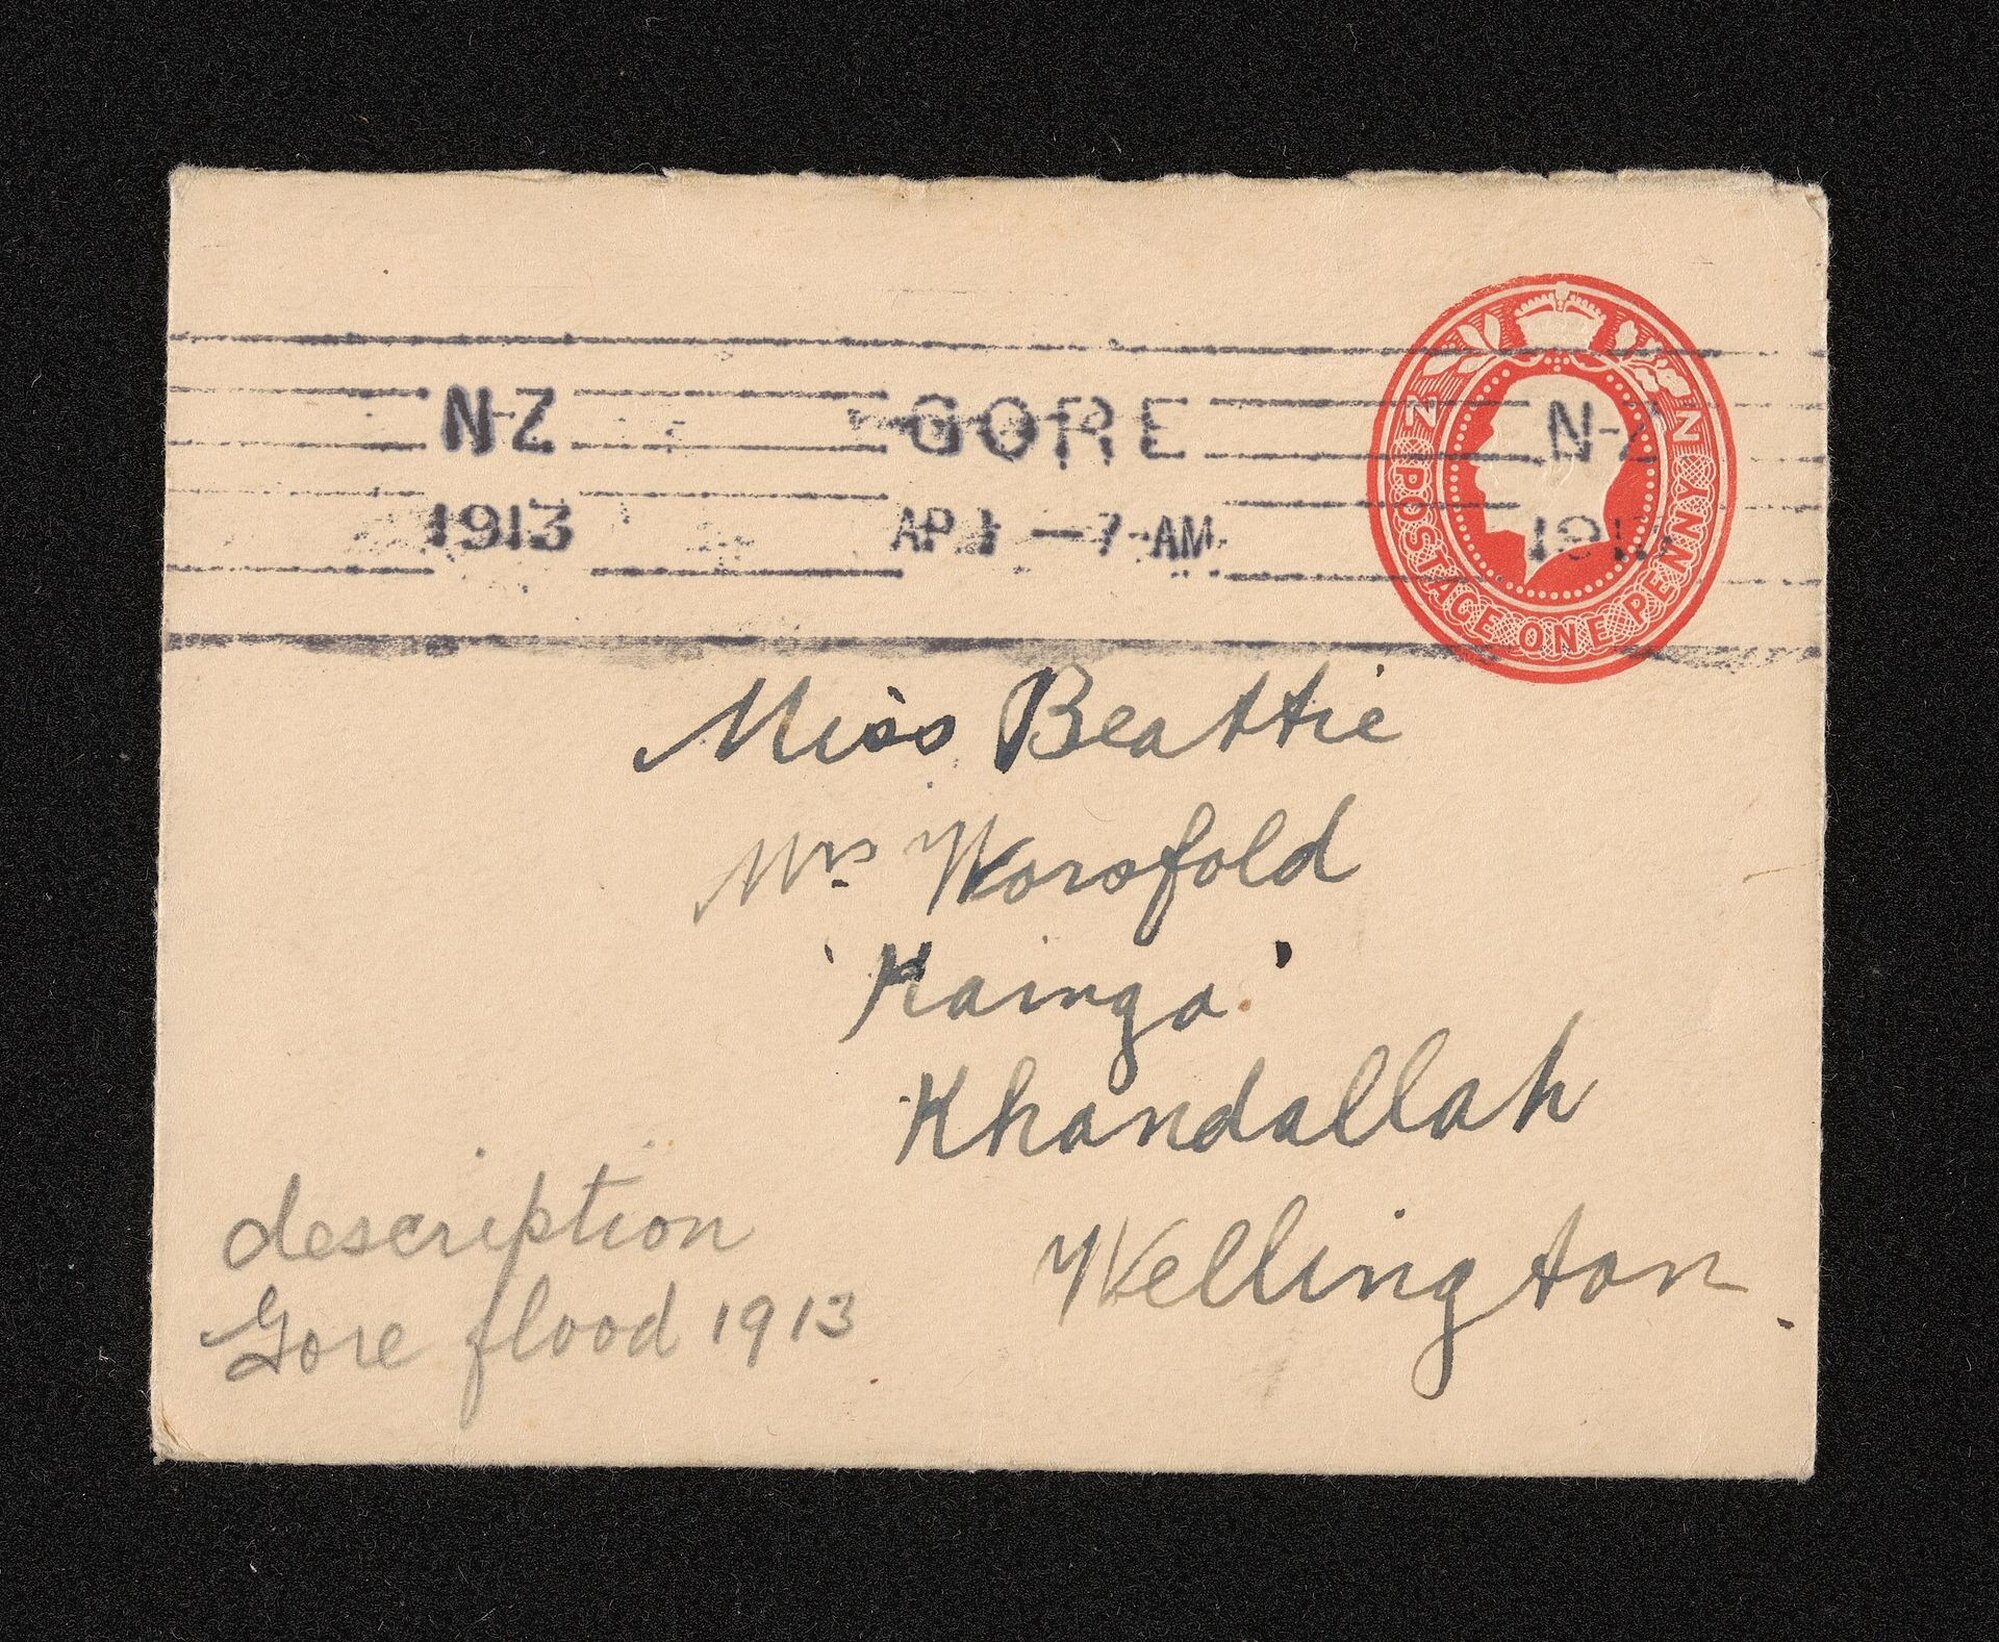 N-Z GORE N-Z
1913 AP 1 — 7-AM 1913
N Z POSTAGE ONE PENNY N Z
Miss Beattie
Mrs Worsfold
'Kainga'
Khandallah
Wellington.
description
Gore flood 1913